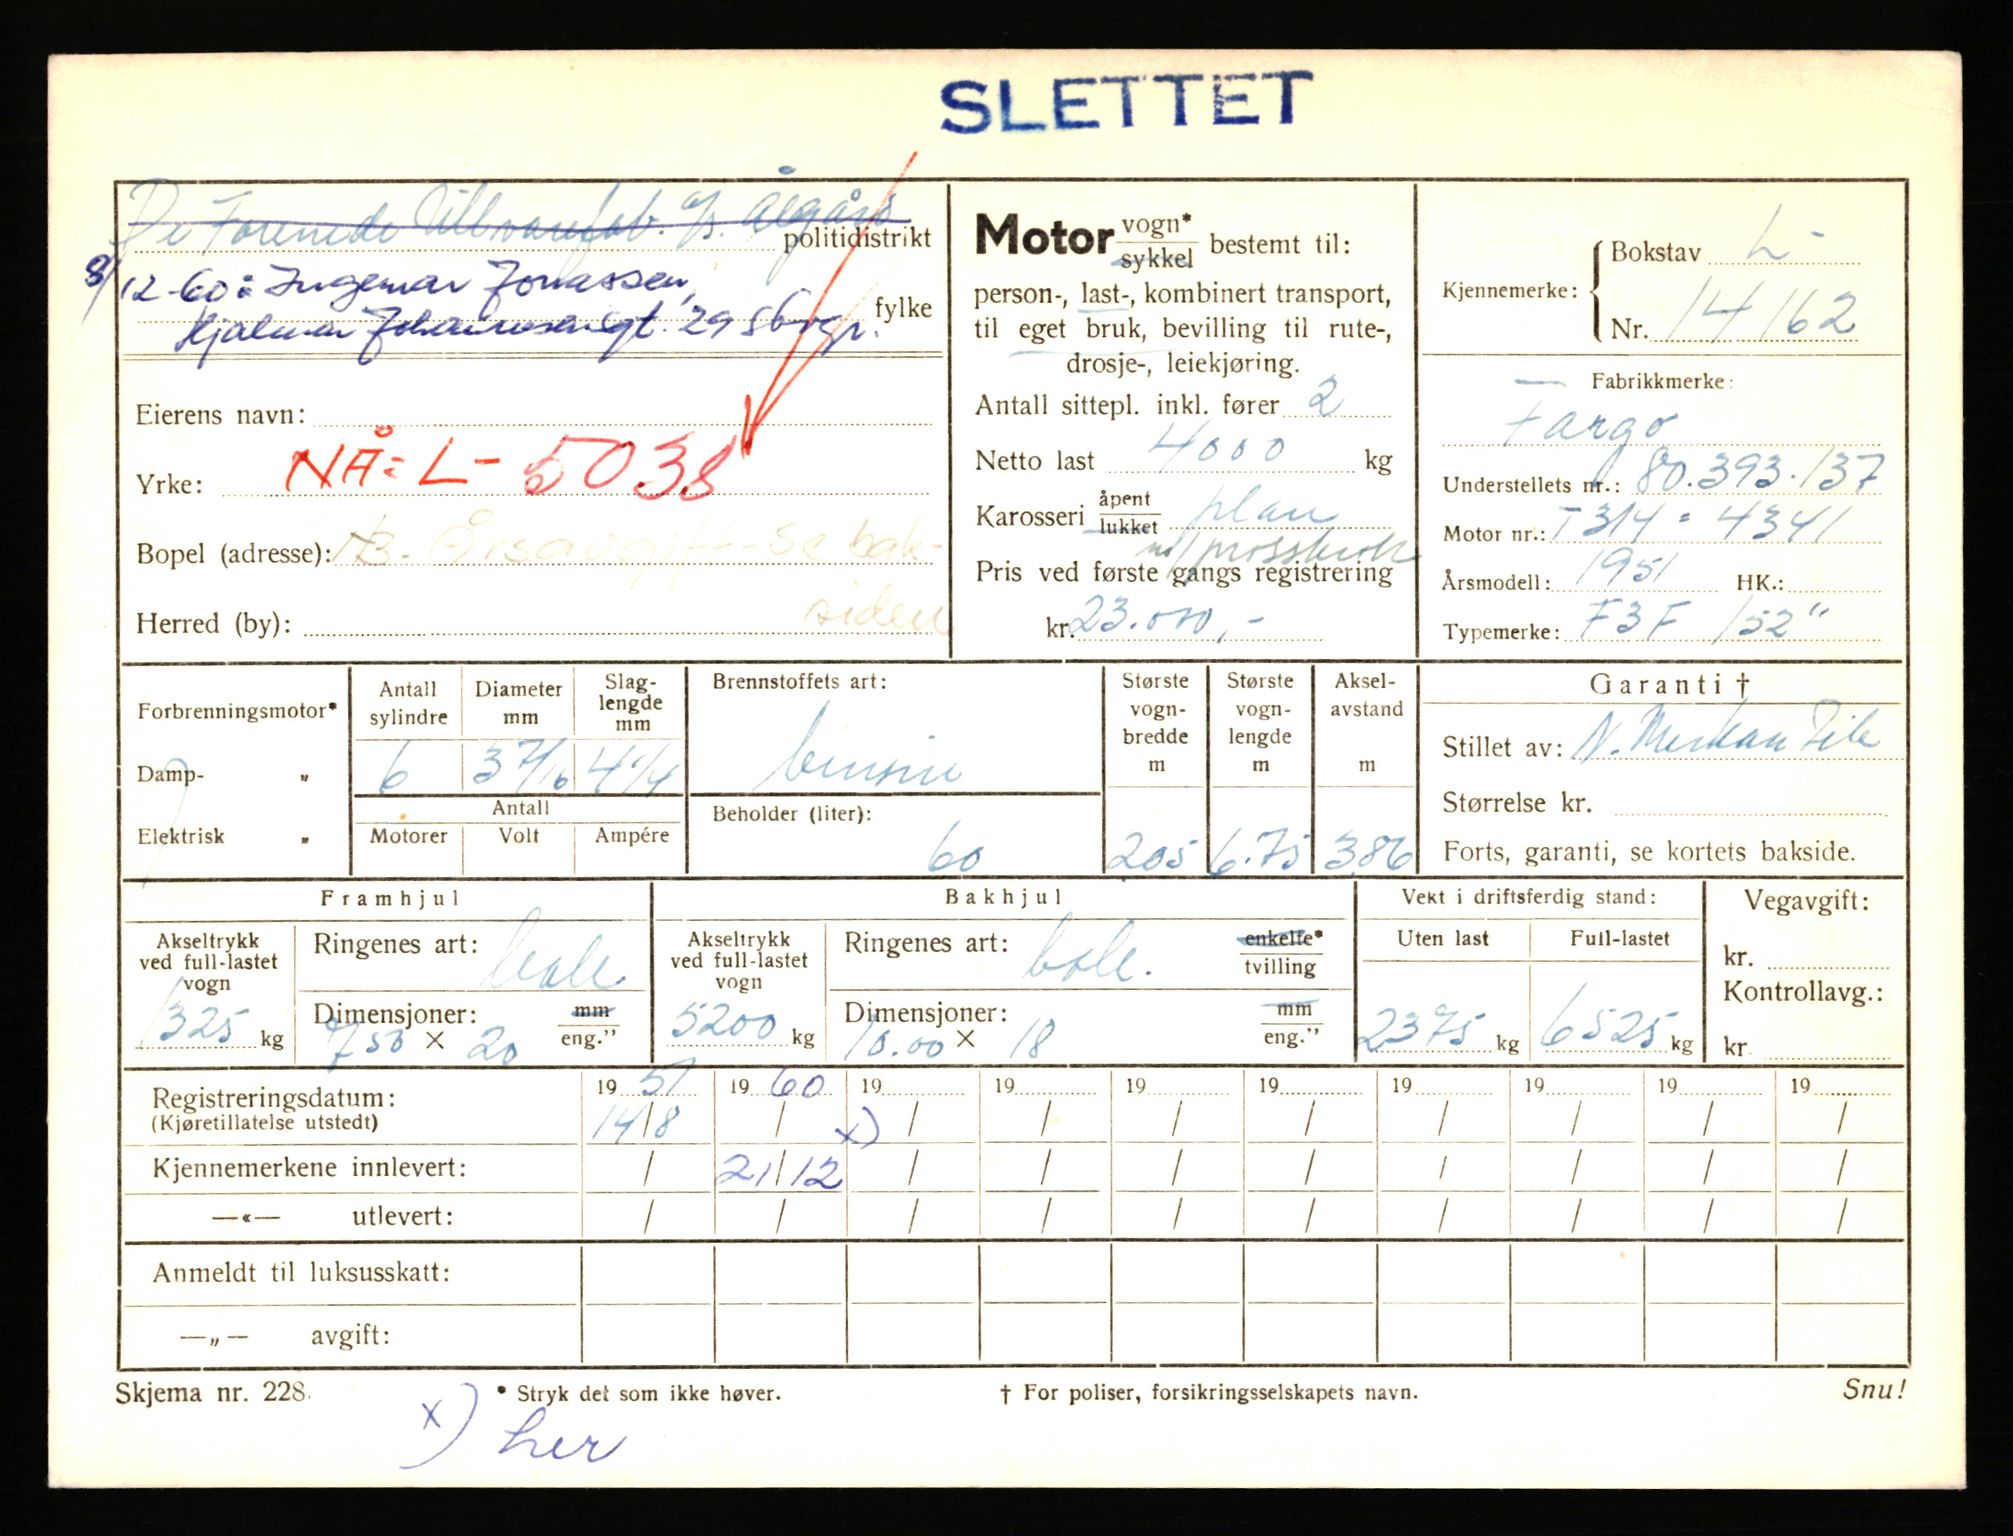 SLETTET
De Forenede Ullvarefab. A/S. Ålgård
politidistrikt
8/12-60: Ingemar Jonassen,
fylke
Hjalmar Johansensgt. 29 Sbrgr.
Eierens navn:
Yrke: NÅ: L- 5038
Bopel (adresse): NB. Årsavgift - se bak-
Herred (by): siden
Motor vogn* / sykkel bestemt til:
person-, last-, kombinert transport,
til eget bruk, bevilling til rute-,
drosje-, leiekjøring.
Antall sittepl. inkl. fører 2
Netto last 4000 kg
Karosseri åpent / lukket plan
Pris ved første gangs registrering
kr. 23.000,-
Kjennemerke: Bokstav L-
Nr. 14162
Fabrikkmerke:
Fargo
Understellets nr.: 80.393.137
Motor nr.: T314 = 4341
Årsmodell: 1951 HK.:
Typemerke: F3F 152"
Forbrenningsmotor*
Damp- „
Elektrisk „
Antall sylindre 6
Diameter mm 3 7/16
Slag-lengde mm 4 1/4
Antall
Motorer Volt Ampére
Brennstoffets art:
bensin
Beholder (liter):
60
Største vogn-bredde m 205
Største vogn-lengde m 6.75
Aksel-avstand m 3.86
Garanti †
Stillet av: N.
Størrelse kr.
Forts, garanti, se kortets bakside.
Framhjul
Akseltrykk ved full-lastet vogn 1325 kg
Ringenes art:
Dimensjoner: mm / eng."
750 × 20
Bakhjul
Akseltrykk ved full-lastet vogn 5200 kg
Ringenes art: enkelte* / tvilling
Dimensjoner: mm / eng."
10.00 × 18
Vekt i driftsferdig stand:
Uten last Full-lastet
2375 kg 6525 kg
Vegavgift:
kr.
Kontrollavg.:
kr.
Registreringsdatum: 1951 1960 19 19 19 19 19 19 19 19
(Kjøretillatelse utstedt) 14/8 / x) / / / / / / / /
Kjennemerkene innlevert: / 21/12 / / / / / / / /
—«— utlevert: / / / / / / / / / /
Anmeldt til luksusskatt:
—„— avgift:
Skjema nr. 228. * Stryk det som ikke høver. † For poliser, forsikringsselskapets navn. Snu!
x) her